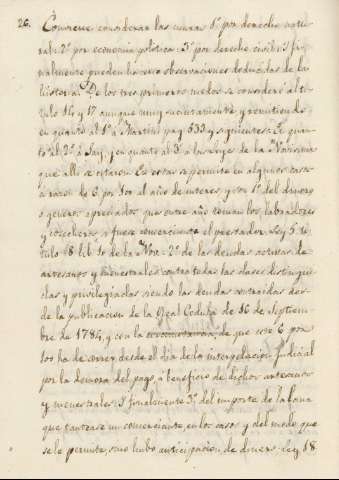 26. Conviene considerar las usuras 1º. por derecho natu-
ral: 2º por economia politica: 3º por derecho civil: y fi-
nalmente pueden hacerse observaciones deducidas de la
historia. De los tres primeros modos se consideró al ti-
tulo 16 y 17 aunque muy sucintamente y remitiendo
en quanto al 1º a Martini pag 533 y siguientes. En quan-
to al 2º a Say, y en quanto al 3º a las leyes de la Novisima
que alli se citaron. En estas se permite en algunos casos
a razon de 6 por 100 al año de interes, y son 1º del dinero
o generos apreciados que entre año toman los labradores
y cosecheros si fuere comerciante el prestador. Ley 5 ti-
tulo 8 lib 10 de la Nov.: 2º de las deudas activas de
artesanos y menestrales contra todas las clases distingui-
das y privilegiadas siendo las deudas contraidas des-
de la publicacion de la Real Cedula de 16 de Septiem-
bre de 1784, y con la circunstancia, de que este 6 por
100 ha de correr desde el dia de la interpelacion judicial
por la demora del pago, a beneficio de dichos artesanos
y menestrales: Y finalmente 3º del importe de la lana
que tantease un comerciante en los casos y del modo que
se le permite, si no hubo anticipacion de dinero. Ley 18